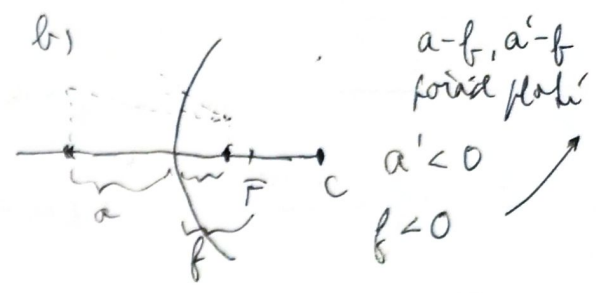 b)
a-f, a'-f
pořád platí
a' < 0
f < 0
a
F
C
f